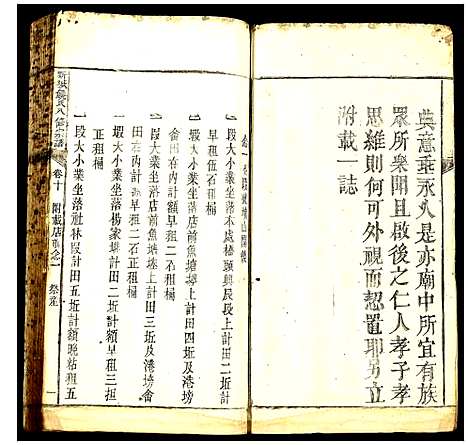 典意垂永久是亦廟中所宜有族
眾所樂聞且啟後之仁人孝子孝
思維則何可外視而恝置耶另立
附載一誌
一段大小業坐落木處橋頭興長段上計田二坵計額
早租伍石桶
一塅大小業坐落店前魚塘塝上計田四坵及港塝
侖田在內計額早租二石租桶
一段大業坐落店前魚塘塝上計田三坵及港塝會
田在內計額早租二石正租桶
一塅大小業坐落楊家塘計田二坵計額早租三石
正租桶
一段大小業坐落社林段計田五坵計額晚粘租五
卷十
附載店
祭產
一